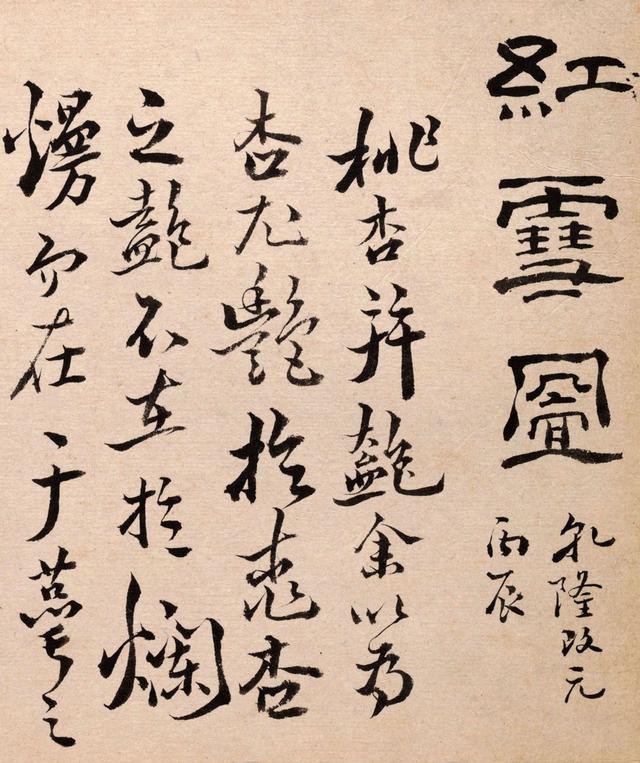 紅雪圖
乾隆改元
丙辰
桃杏并艷余以為
杏尤艷於桃杏
之艷不在於爛
熳而在于蕚之